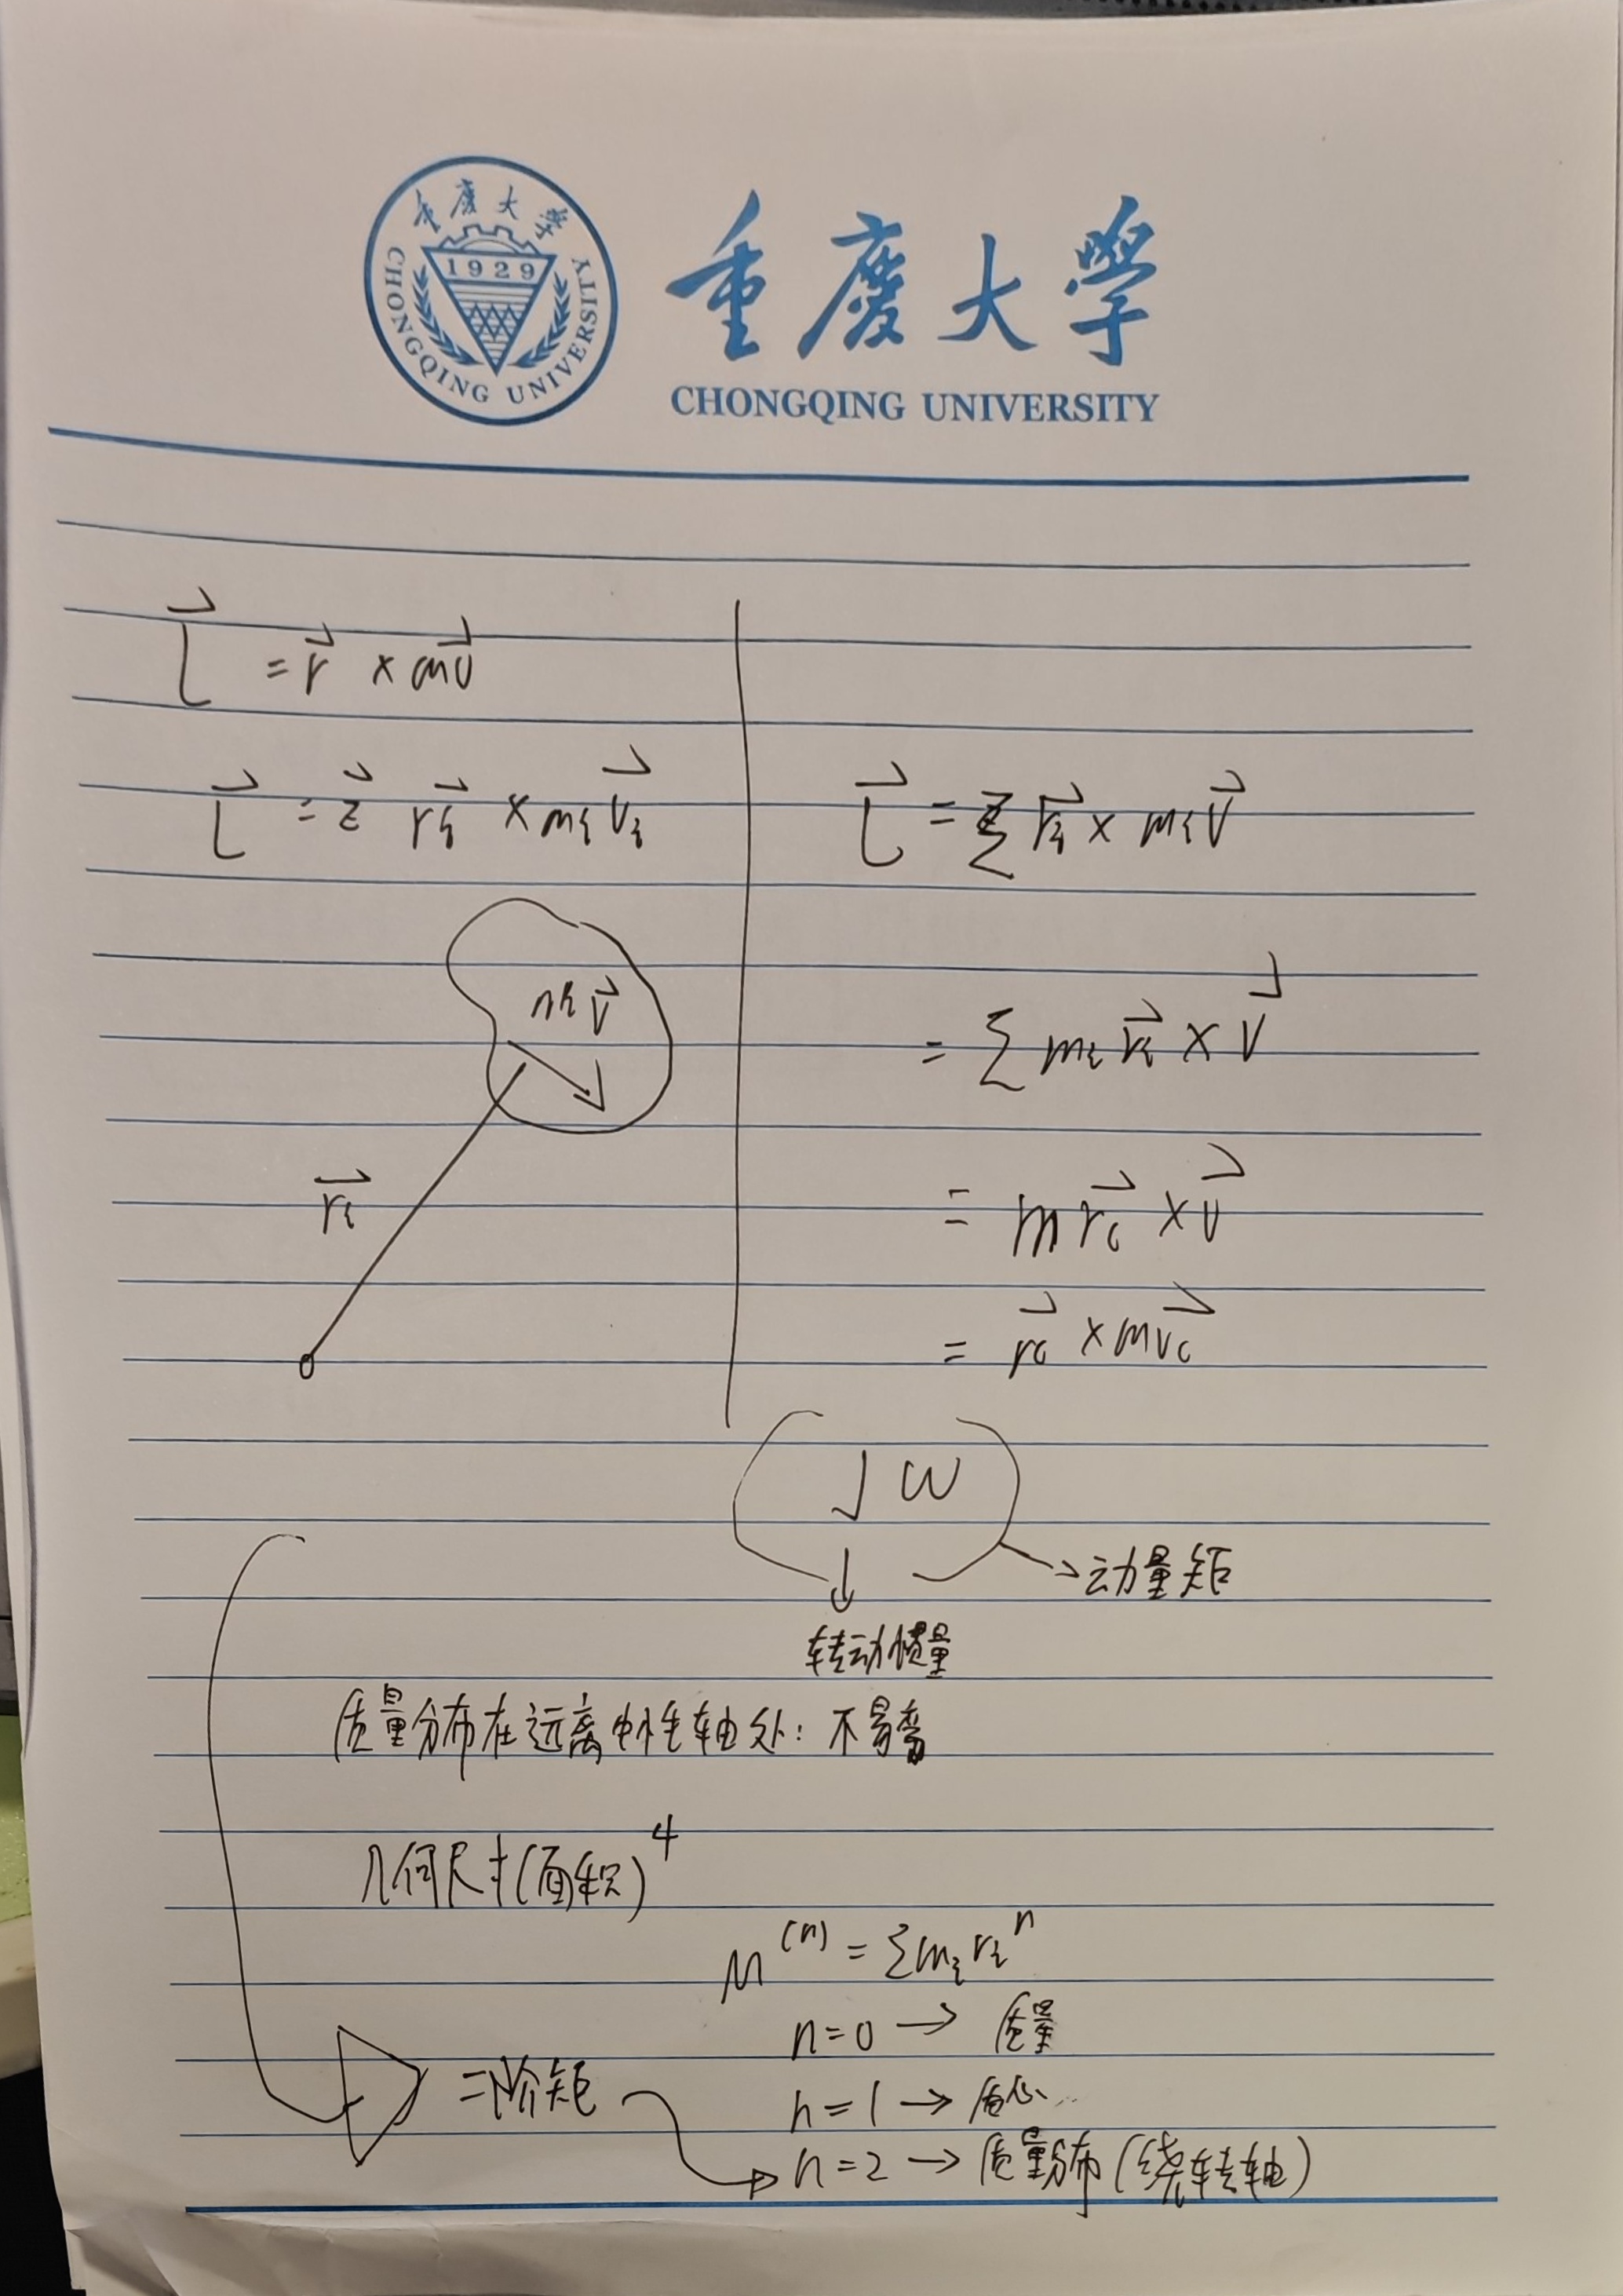 重慶大學
1929
CHONGQING UNIVERSITY
重慶大學
CHONGQING UNIVERSITY
L⃗ = r⃗ × mv⃗
L⃗ = Σ r⃗i × mi v⃗i
mi v⃗
r⃗i
L⃗ = Σ r⃗i × mi v⃗
= Σ mi r⃗i × v⃗
= m r⃗c × v⃗
= r⃗c × m v⃗c
J ω
→ 动量矩
↓
转动惯量
质量分布在远离中性轴处: 不易弯
几何尺寸(面积)⁴
M⁽ⁿ⁾ = Σ mi riⁿ
n=0 → 质量
n=1 → 质心
二阶矩
n=2 → 质量分布 (绕转轴)